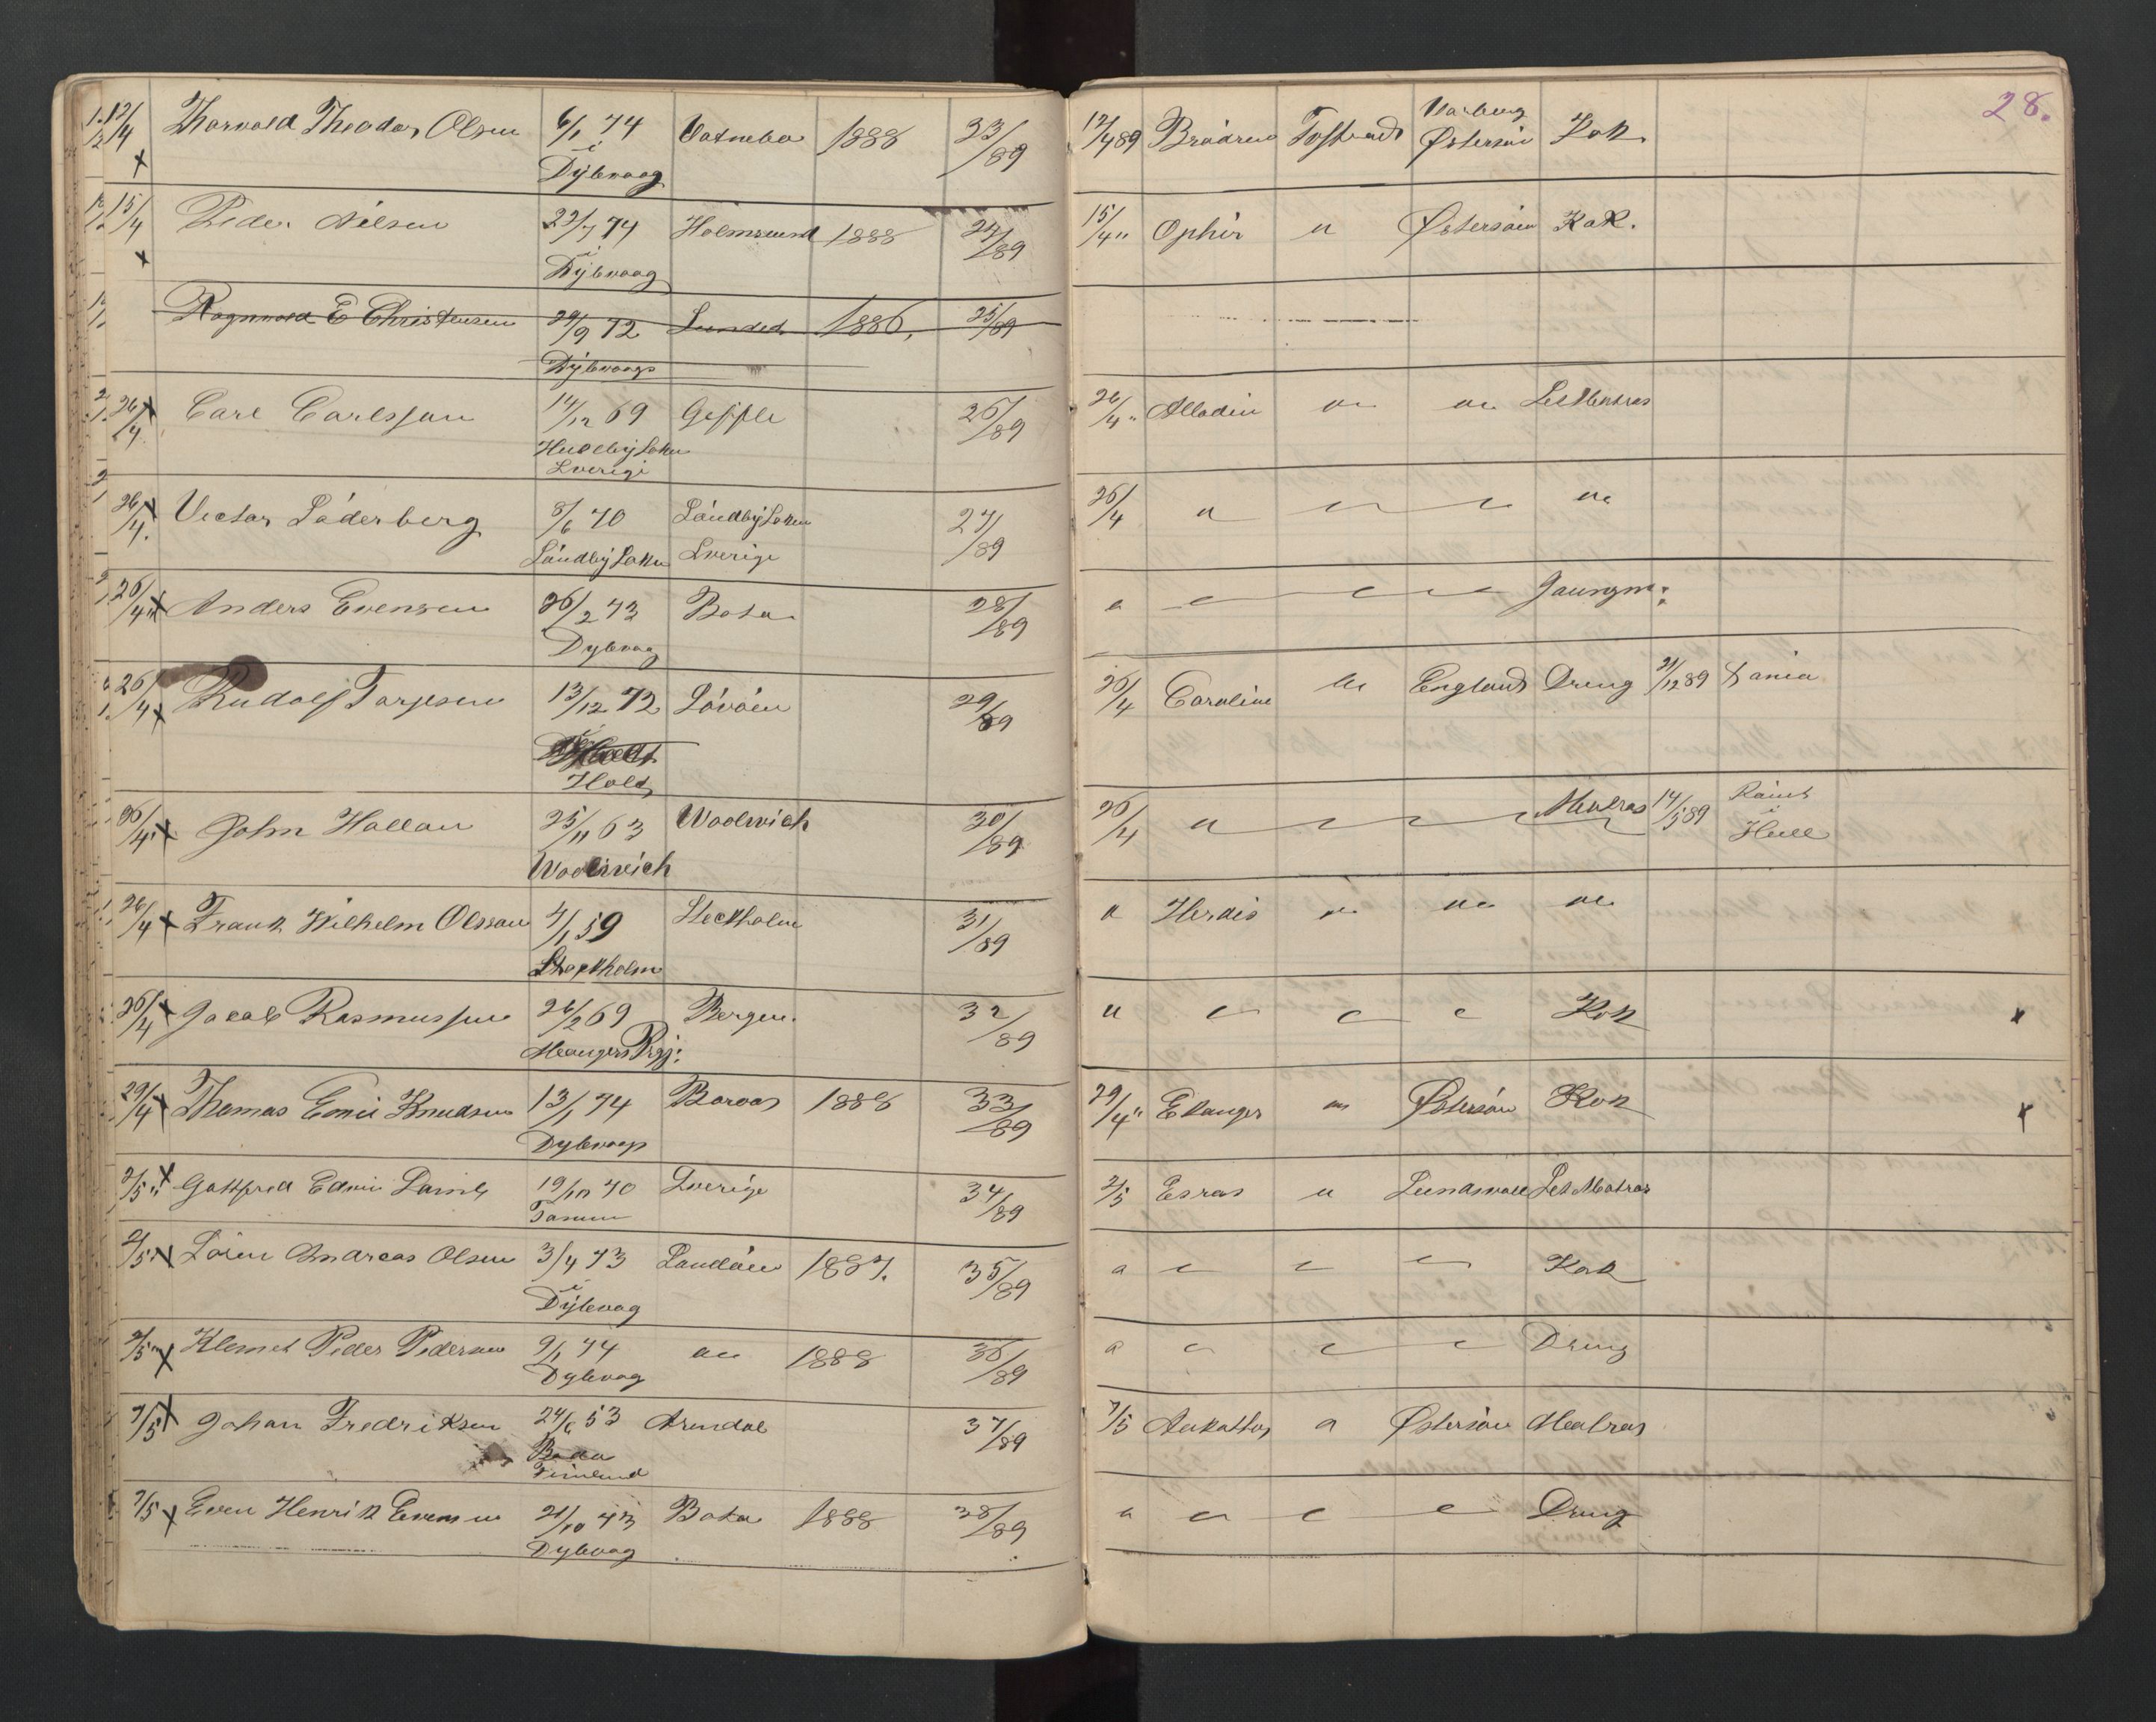 28.
12/4 Thorvald Theodor Olsen 6/1 74 Vatnebo 1888 23/89 12/4 89 Brødrene Tostrands Warberg Kok
x i Østersøen
Dybvaag
15/4 Peder Nilsen 22/7 74 Holmsund 1888 24/89 15/4 " Ophir " Østersøen Kok.
x i
Dybvaag
Ragnvald E Christensen 29/9 72 Lunded 1886, 25/89
Dybvaag
26/4 x Carl Carlsson 14/12 69 Geffle 26/89 26/4 " Alladin " " Let Matros
Sverige
26/4 x Victor Söderberg 8/6 70 Söndby Sokn 27/89 26/4 " " " "
Söndby Sokn Sverige
26/4 " x Anders Evensen 26/2 73 Bota 28/89 " " " " Joungm:
Dybvag
26/4 x Rudolf Torjesen 13/12 72 Lövöen 29/89 26/4 Caroline " England Dreng 31/12 89 Xania
Holt
26/4 x John Hallan 25/11 63 Woolwich 30/89 26/4 " " " Matros 14/5 89 Rømt
i
Woolwich Hull
26/4 x Frank Wilhelm Olsson 4/1 59 Stockholm 31/89 " Herdis " " "
Stockholm
26/4 x Jacob Rasmussen 26/2 69 Bergen. 32/89 " " " " Kok x
Mangers Prgj:
29/4 x Thomas Emil Knudsen 13/1 74 Borøa 1888 33/89 29/4 " Ellanger " Østersøen Kok x
Dybvaag
2/5 " x Gottfred Edvin 19/10 70 Sverige 34/89 2/5 Esras " Sundsvall Let Matros
Tanum
2/5 " x Sören Andreas Olsen 3/4 73 Sandöen 1887. 35/89 " " " " Kok
i
Dybvag
2/5 " x Klemet Peder Pedersen 9/1 74 " 1888 36/89 " " " " Dreng
Dybvag
7/5 x Johan Fredriksen 24/6 53 Arendal 37/89 7/5 " Østersøen Matros
Finland
7/5 x Even Henrik Evensen 21/10 73 Bota 1888 38/89 " " " " Dreng
Dybvag